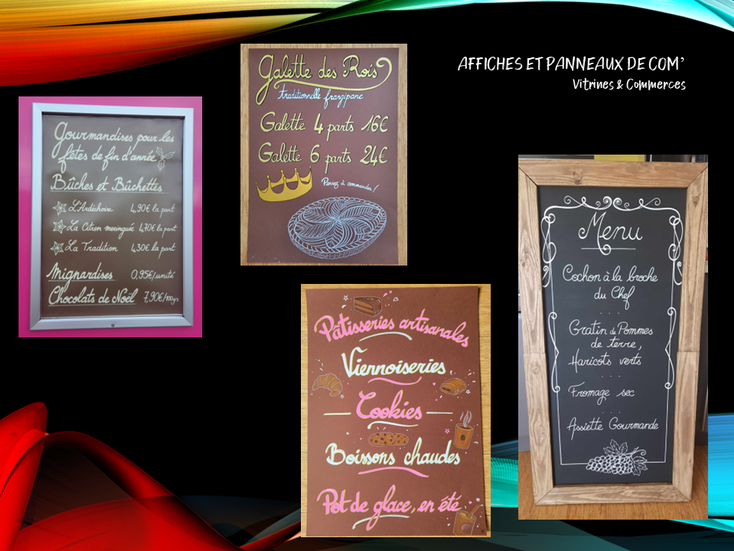 AFFICHES ET PANNEAUX DE COM'
Vitrines & Commerces
Gourmandises pour les
fêtes de fin d'année
Bûches et Bûchettes
L'Ardéchoise 4,90€ la part
La Citron meringuée 4,70€ la part
La Tradition 4,30€ la part
Mignardises 0,95€/unité
Chocolats de Noël 7,90€/100gr
Galette des Rois
traditionnelle frangipane
Galette 4 parts 16€
Galette 6 parts 24€
Pensez à commander!
Pâtisseries artisanales
Viennoiseries
Cookies
Boissons chaudes
Pot de glace, en été
Menu
Cochon à la broche
du Chef
Gratin de Pommes
de terre,
Haricots verts
Fromage sec
Assiette Gourmande